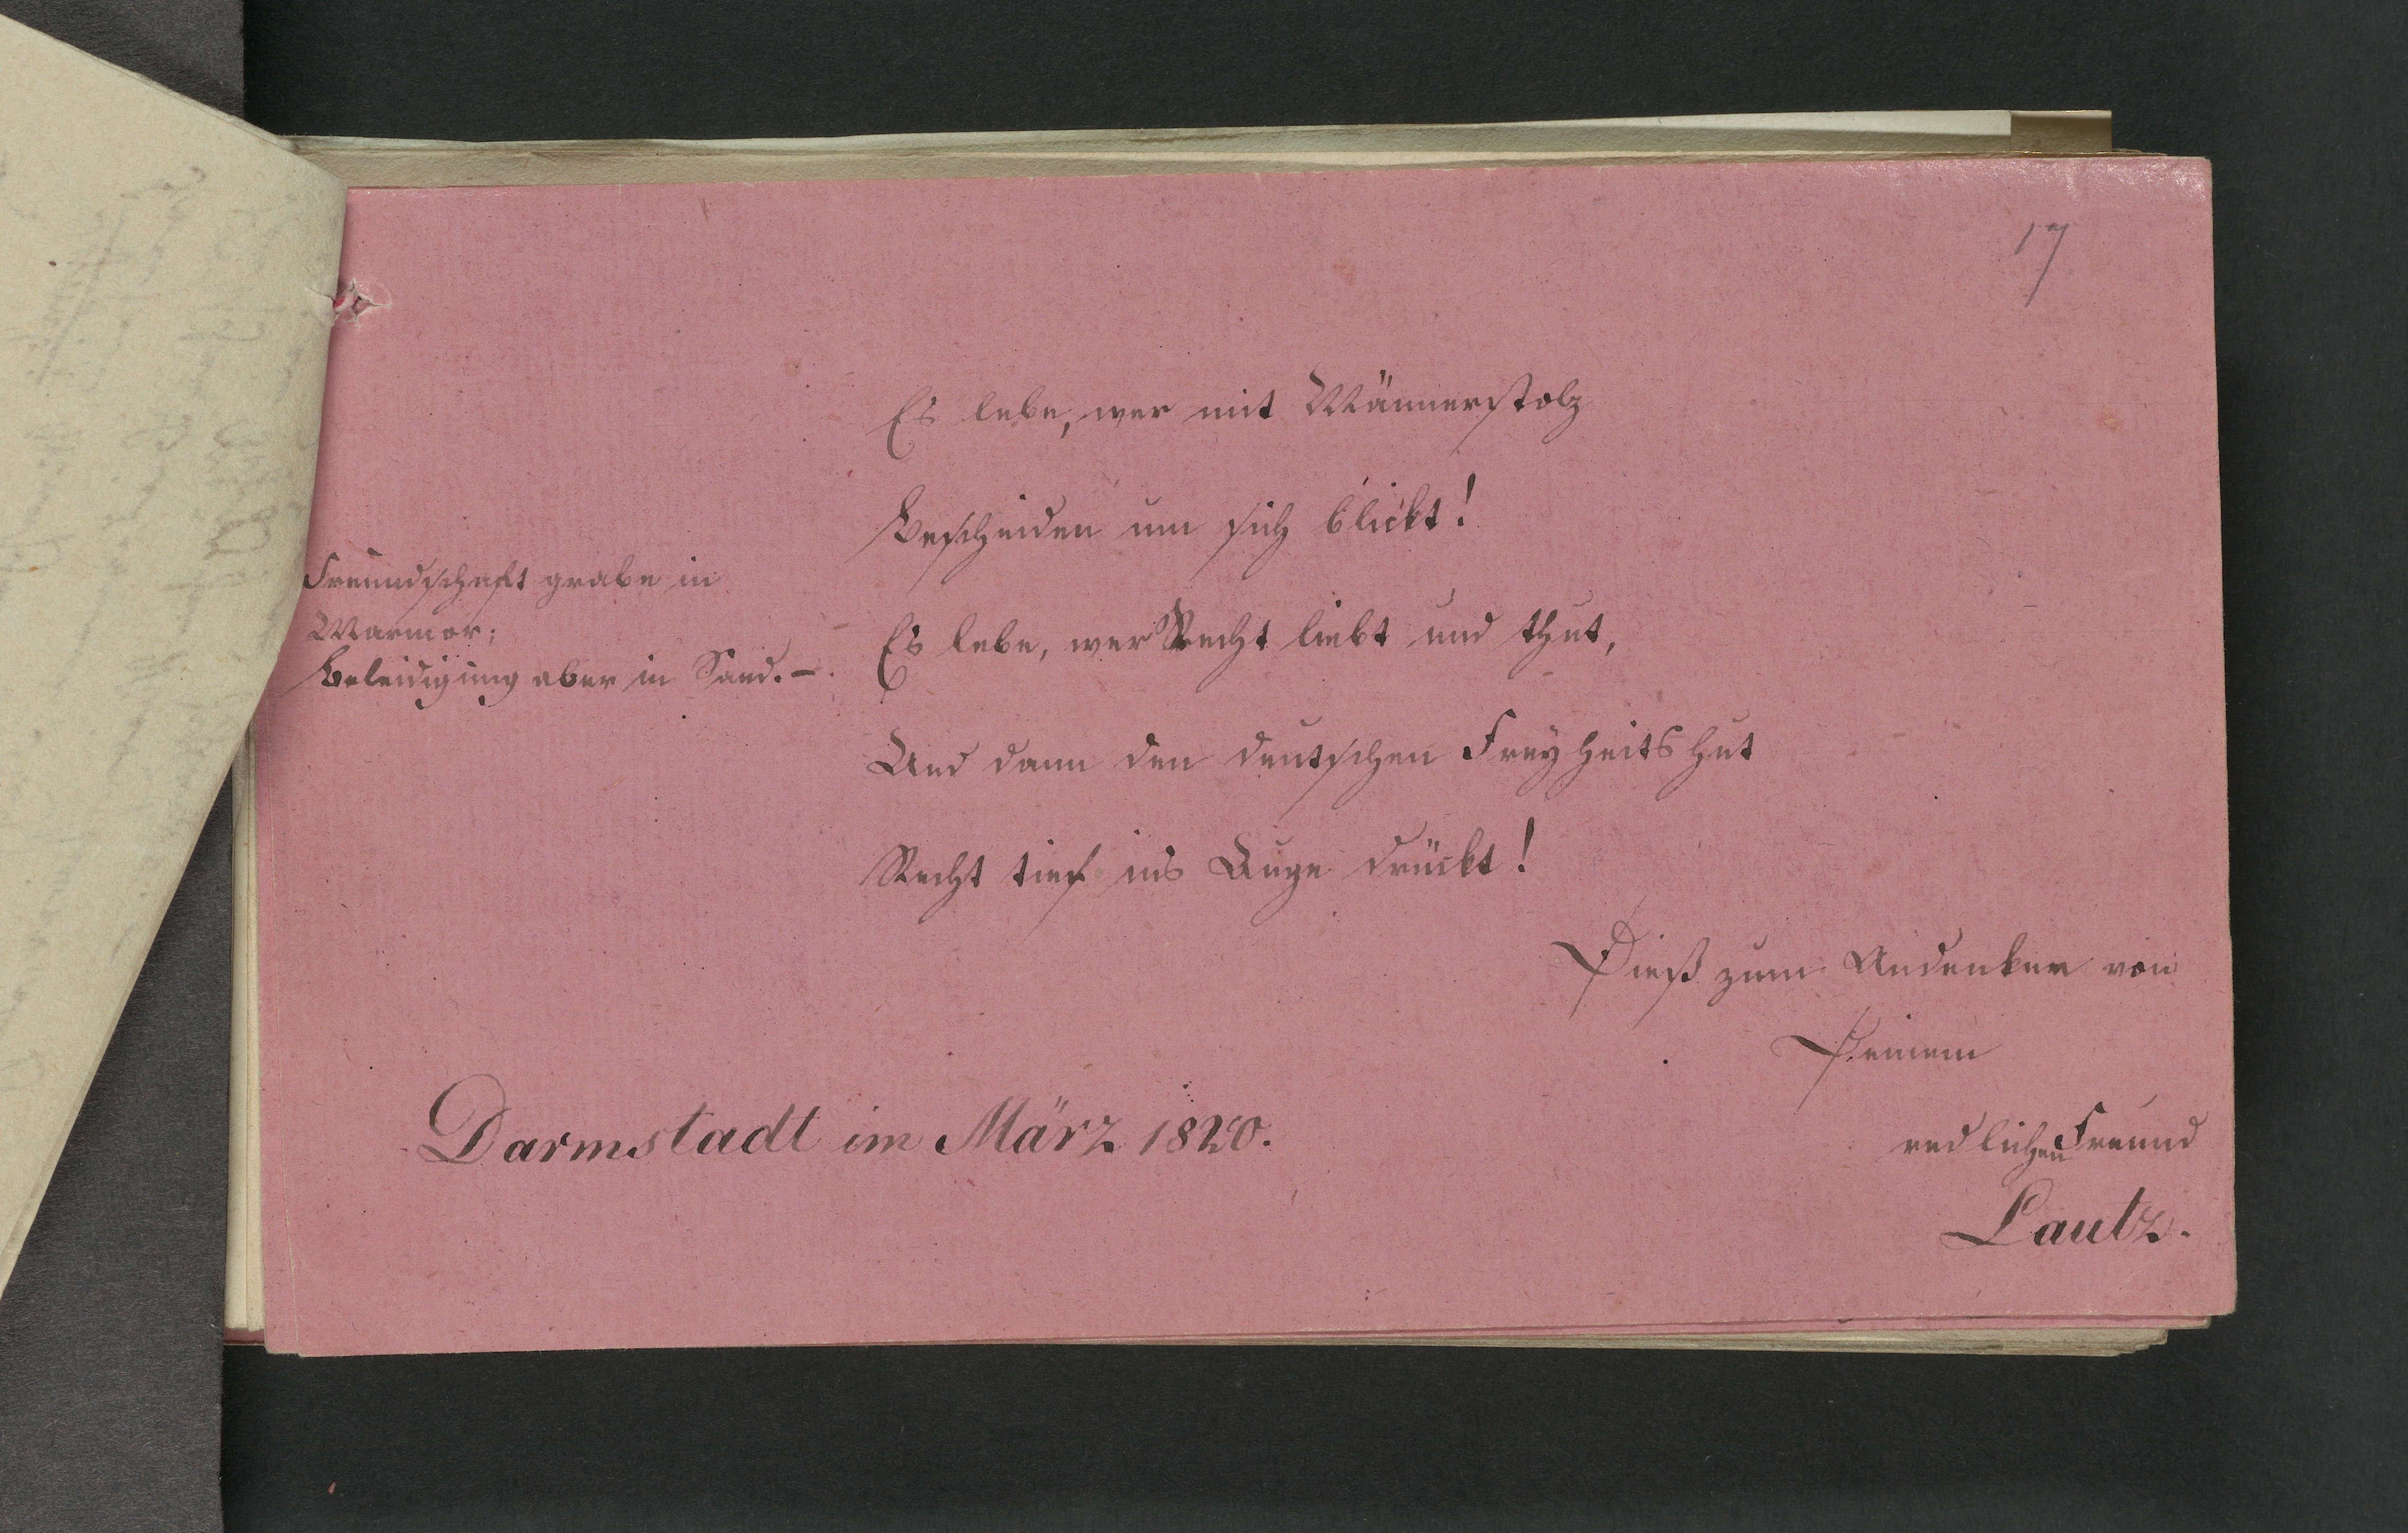 17
Es lebe, wer mit Männerstolz
Bescheiden um sich blickt!
Es lebe, wer Recht liebt und thut,
Und dann den deutschen Freyheitshut
Recht tief ins Auge drückt!
Freundschaft grabe in
Marmor;
Beleidigung aber in Sand. –
Dieß zum Andenken von
Deinem
redlichen Freund
Lautz.
Darmstadt im März 1820.